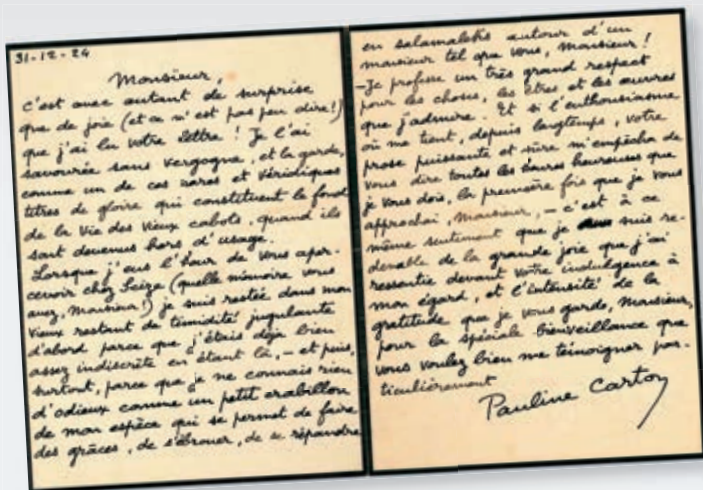 31-12-24
Monsieur,
c'est avec autant de surprise
que de joie (et ce n'est pas peu dire!)
que j'ai lu votre lettre ! Je l'ai
savourée sans vergogne, et la garde,
comme un de ces rares et véridiques
titres de gloire qui constituent le fond
de la vie des vieux cabots, quand ils
sont devenus hors d'usage.
Lorsque j'eus l'heur de vous aper-
cevoir chez Seize (quelle mémoire vous
avez, Monsieur!) je suis restée dans mon
vieux restant de timidité jugulante
d'abord parce que j'étais déjà bien
assez indiscrète en étant là, - et puis,
surtout, parce que je ne connais rien
d'odieux comme un petit crabillon
de mon espèce qui se permet de faire
des grâces, de s'ébrouer, de se répandre
en salamaleks autour d'un
monsieur tel que vous, monsieur !
-Je professe un très grand respect
pour les choses, les êtres et les œuvres
que j'admire. Et si l'enthousiasme
où me tient, depuis longtemps, votre
prose puissante et sûre m'empêcha de
vous dire toutes les heures heureuses que
je vous dois, la première fois que je vous
approchai, Monsieur, - c'est à ce
même sentiment que je suis re-
devable de la grande joie que j'ai
ressentie devant votre indulgence à
mon égard, et l'intensité de la
gratitude que je vous garde, Monsieur,
pour la spéciale bienveillance que
vous voulez bien me témoigner par-
ticulièrement
Pauline Carton